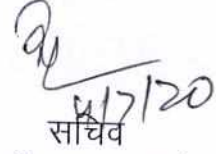 4/7/20
सचिव